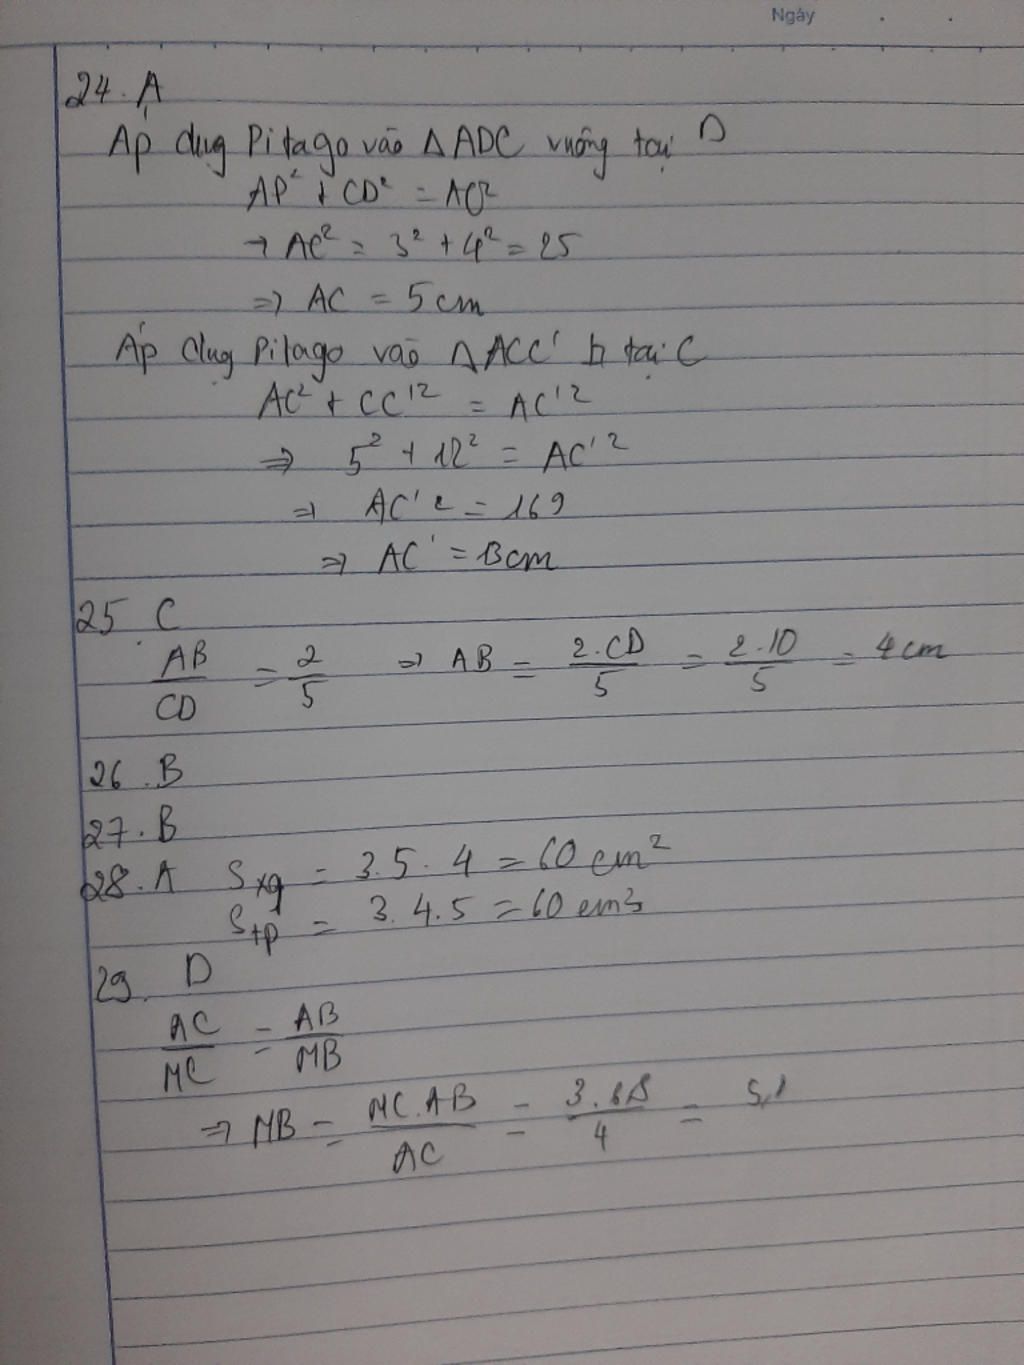 Ngày
24. A
Áp dụng Pitago vào △ADC vuông tại D
AD² + CD² = AC²
→ AC² = 3² + 4² = 25
⇒ AC = 5cm
Áp dụng Pitago vào △ACC' ⊾ tại C
AC² + CC'² = AC'²
⇒ 5² + 12² = AC'²
⇒ AC'² = 169
⇒ AC' = 13cm
25 C
AB/CD = 2/5 ⇒ AB = 2.CD/5 = 2.10/5 = 4cm
26. B
27. B
28. A Sxq = 3.5.4 = 60 cm²
Stp = 3.4.5 = 60 cm³
29. D
AC/MC = AB/MB
⇒ MB = MC.AB/AC = 3.6,8/4 = 5,1